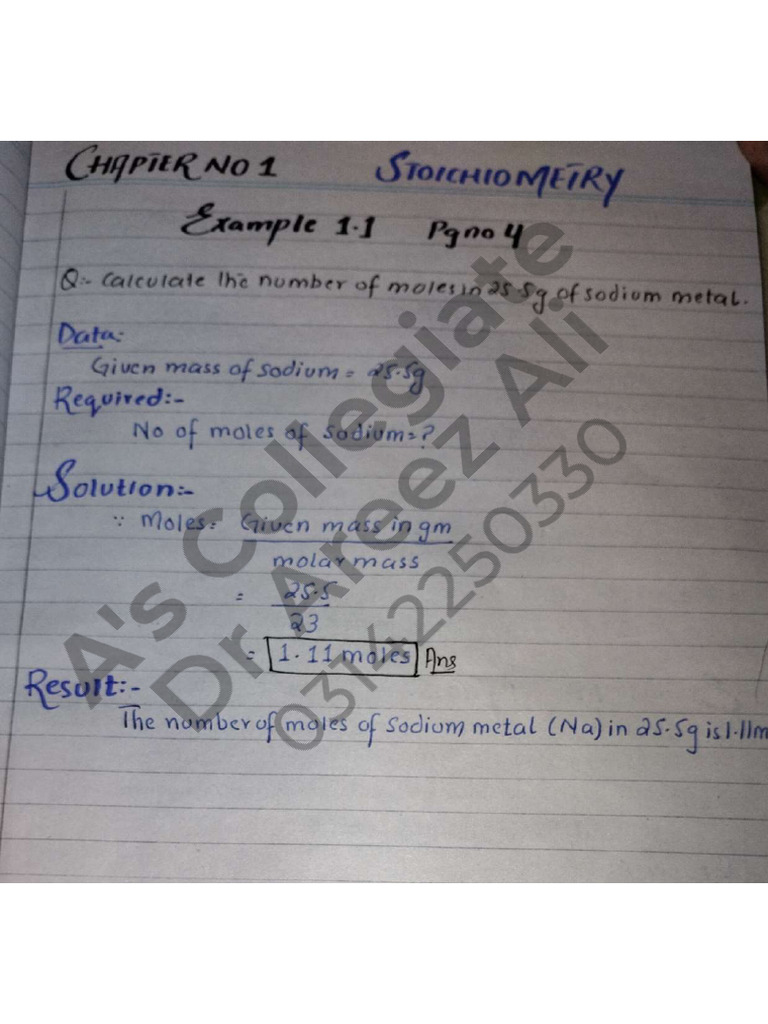 CHAPTER NO 1 STOICHIOMETRY
Example 1.1 Pg no 4
Q:- Calculate the number of moles in 25.5g of sodium metal.
Data:-
Given mass of sodium = 25.5g
Required:-
No of moles of sodium = ?
Solution:-
∵ Moles = Given mass in gm
molar mass
= 25.5
23
= 1.11 moles Ans
Result:-
The number of moles of sodium metal (Na) in 25.5g is 1.11m
A's Collegiate
Dr Areez Ali
03142250330